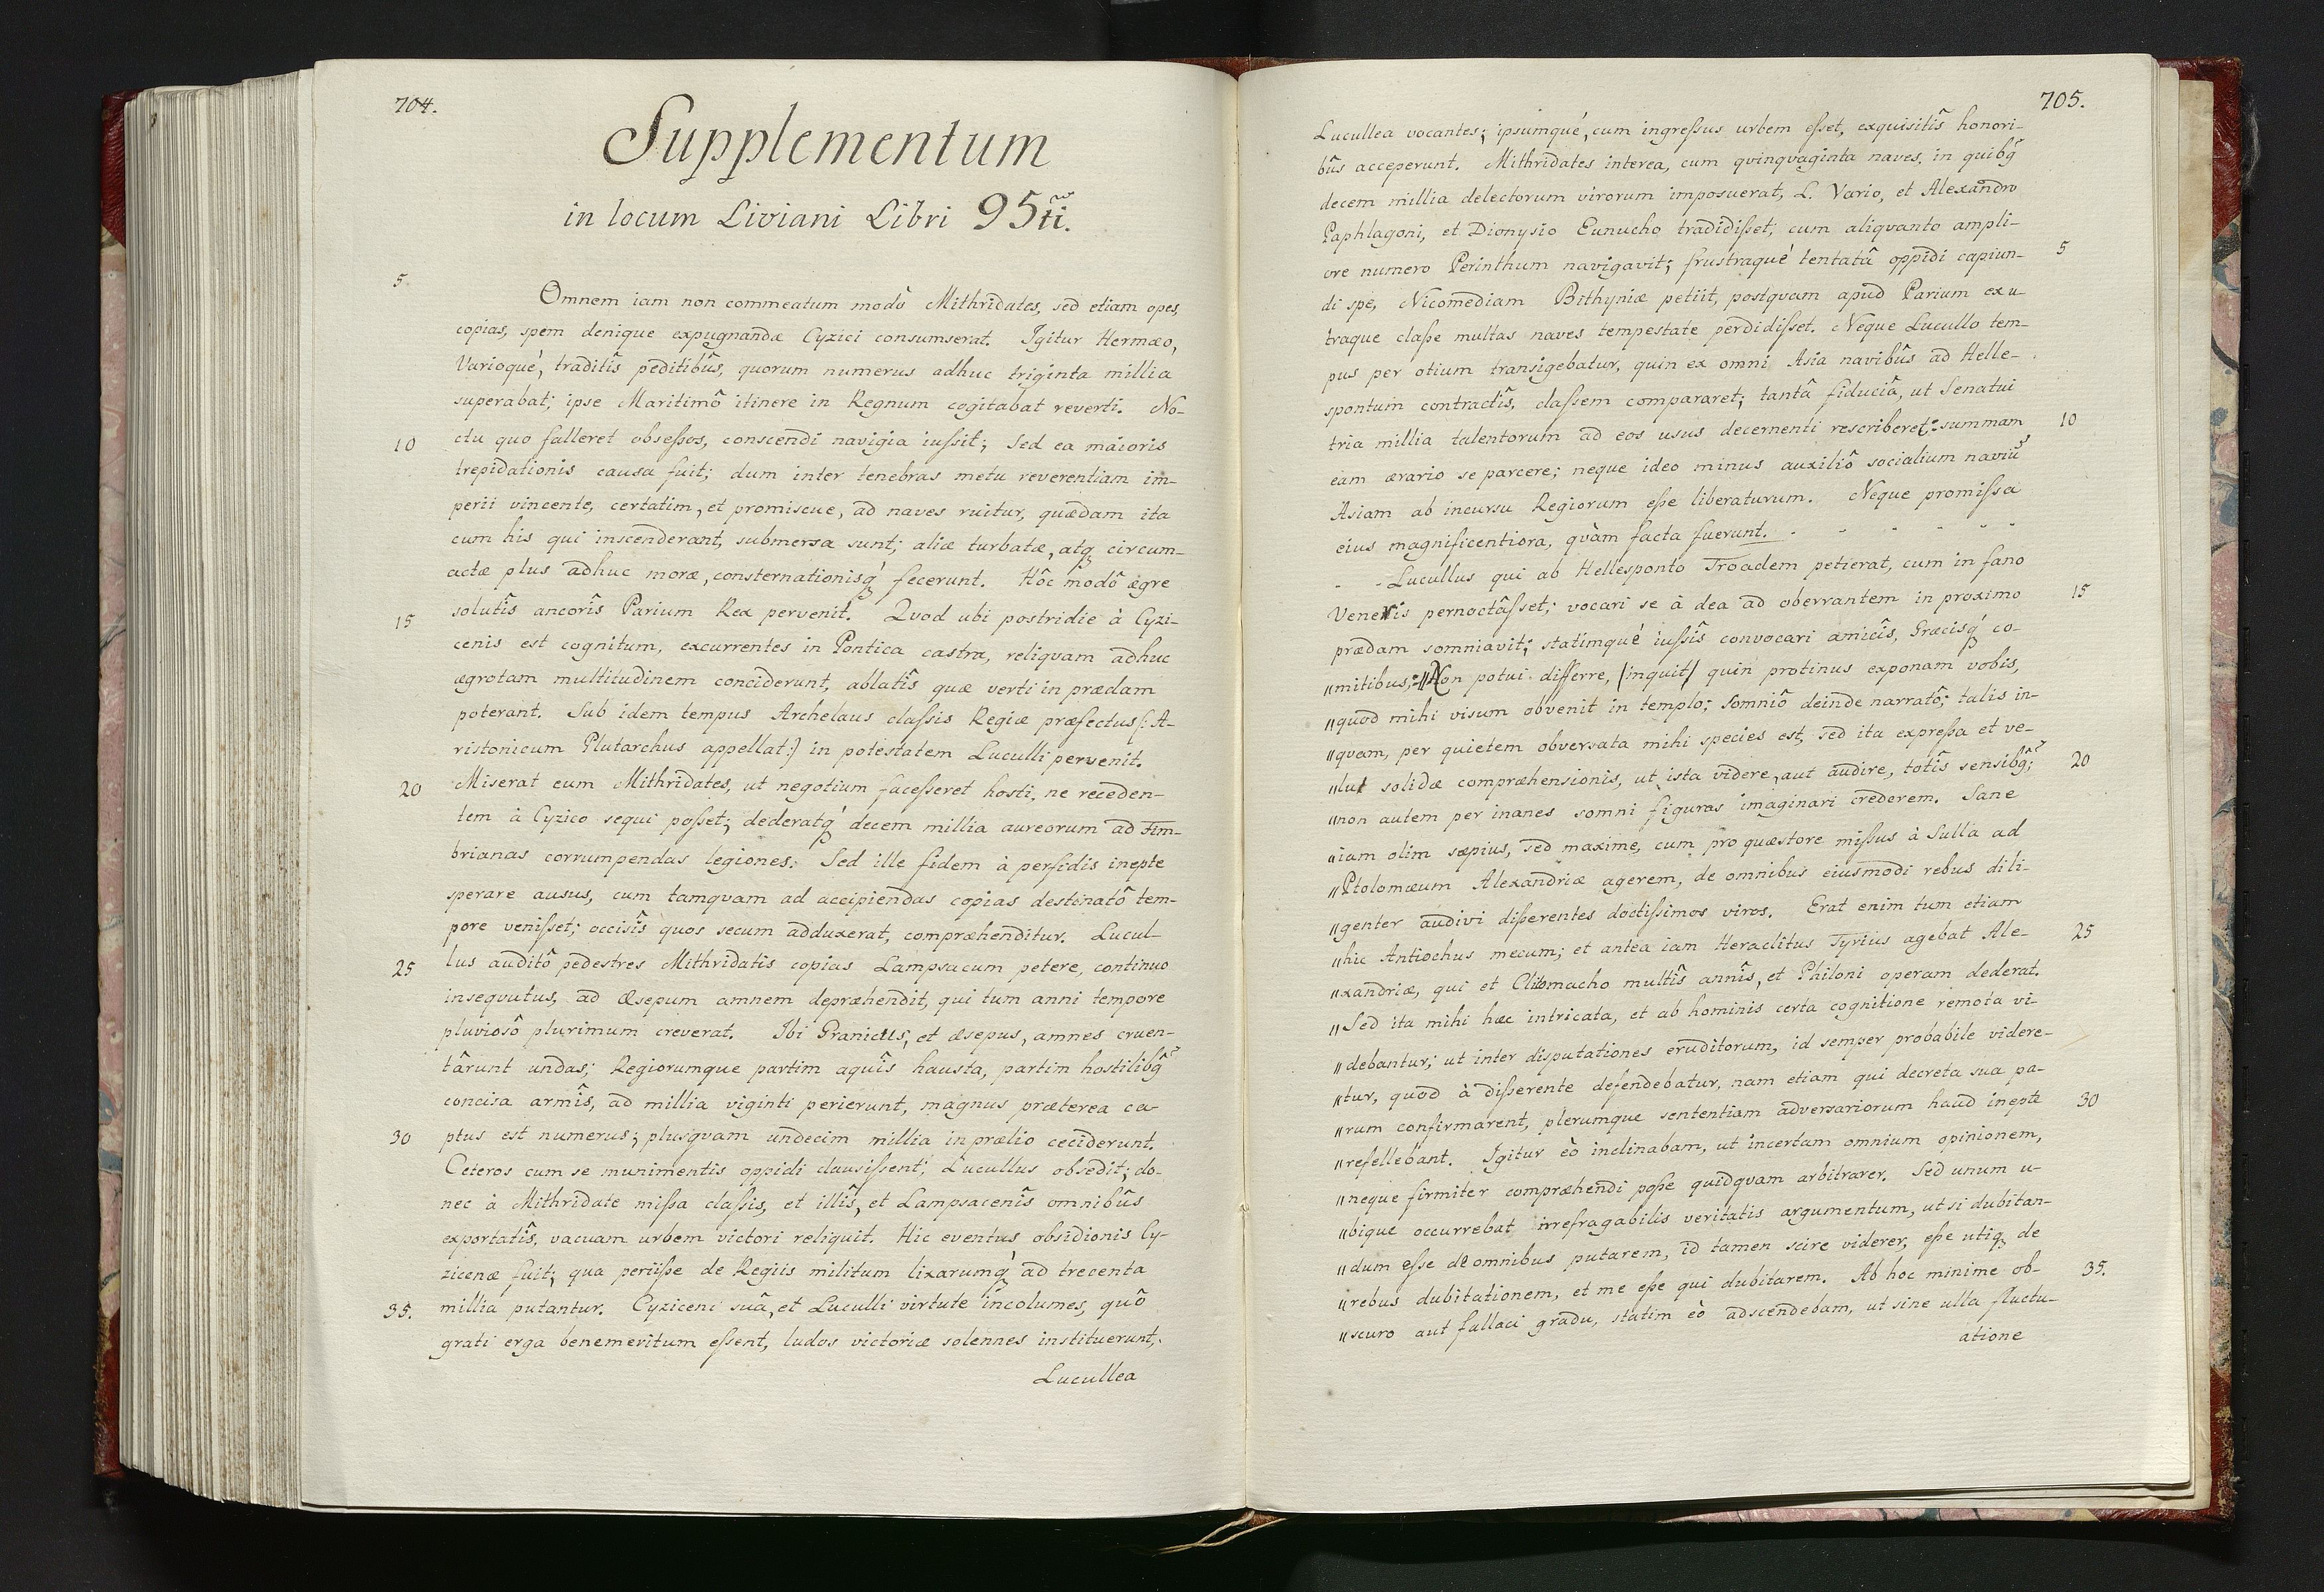 704.
Supplementum
in locum Liviani Libri 95ti.
5.
Omnem iam non commeatum modò Mithridates, sed etiam opes,
copias, spem denique expugnandæ Cyzici consumserat. Igitur Hermæo,
Varioqué, traditîs peditibûs, quorum numerus adhuc triginta millia
superabat; ipse Maritimô itinere in Regnum cogitabat reverti. No-
10 ctu quo falleret obseßos, conscendi navigia iußit; Sed ea maioris
trepidationis causa fuit; dum inter tenebras metu reverentiam im-
perii vincente, certatim, et promiscue, ad naves ruitur, quædam ita
cum his qui inscenderant, submersa sunt; aliæ turbatæ, atq circum-
actæ plus adhuc moræ, consternationisq́ fecerunt. Hôc modô ægre
15 solutîs ancorîs Parium Rex pervenit. Quod ubi postridie à Cyzi-
cenis est cognitum, excurrentes in Pontica castra, reliqvam adhuc
ægrotam multitudinem conciderunt, ablatîs quæ verti in prædam
poterant. Sub idem tempus Archelaus claßis Regiæ præfectus (: A-
ristonicum Plutarchus appellat:) in potestatem Luculli pervenit.
20 Miserat eum Mithridates, ut negotium faceßeret hosti, ne receden-
tem à Cyzico sequi poßet; dederatq́ decem millia aureorum ad Fim-
brianas corrumpendas legiones: Sed ille fidem à perfidis inepte
sperare ausus, cum tamqvam ad accipiendas copias destinatô tem-
pore venißet; occisîs quos secum adduxerat, compræhenditur. Lucul-
25 lus auditô pedestres Mithridatis copias Lampsacum petere, continuo
inseqvutus, ad Æsepum amnem depræhendit, qui tum anni tempore
pluviosô plurimum creverat. Ibi Granicus, et Æsepus, amnes cruen-
târunt undas; Regiorumque partim aquîs hausta, partim hostilibq̂
concisa armîs, ad millia viginti perierunt, magnus præterea ca-
30 ptus est numerus; plusqvam undecim millia in prælio ceciderunt.
Ceteros cum se munimentis oppidi clausißent; Lucullus obsedit; do-
nec à Mithridate mißa claßis, et illîs, et Lampsacenîs omnibûs
exportatîs, vacuam urbem victori reliquit. Hic eventus obsidionis Cy-
zicenæ fuit; qua periiße de Regiis militum lixarumq́ ad trecenta
35. millia putantur. Cyziceni suâ, et Luculli virtute incolumes, quô
grati erga benemeritum eßent, ludos victoriæ solennes instituerunt,
Lucullea
705.
Lucullea vocantes; ipsumqué, cum ingreßus urbem eßet, exquisitîs honori-
bûs acceperunt. Mithridates interea, cum qvinqvaginta naves, in quibq̂
decem millia delectorum virorum imposuerat, L. Vario, et Alexandro
Paphlagoni, et Dionysio Eunucho tradidißet; cum aliqvanto ampli-
ore numero Perinthum navigavit; frustraqué tentatâ oppidi capiun- 5
di spe, Nicomediam Bithyniæ petiit, postqvam apud Parium ex u-
traque claße multas naves tempestate perdidißet. Neque Lucullo tem-
pus per otium transigebatur, quin ex omni Asia navibûs ad Helle-
spontum contractîs, claßem compararet; tantâ fiduciâ, ut Senatui
tria millia talentorum ad eos usus decernenti rescriberet: summam 10
eam ærario se parcere; neque ideo minus auxiliô socialium naviū
Asiam ab incursu Regiorum eße liberaturum. Neque promißa
eius magnificentiora, qvàm facta fuerunt. - - - - - -
- - Lucullus qui ab Hellesponto Troadem petierat, cum in fano
Veneris pernoctâßet; vocari se à dea ad oberrantem in proximo 15
prædam somniavit; statimqué iußîs convocari amicîs, Græcisq́ co-
"mitibus,: "Non potui differre, /inquit/ quin protinus exponam vobis,
"quod mihi visum obvenit in templo; somniô deinde narratô; talis in-
"qvam, per quietem obversata mihi species est, sed ita expreßa et ve-
"lut solidæ compræhensionis, ut ista videre, aut audire, totîs sensibq̂; 20
"non autem per inanes somni figuras imaginari crederem. Sane
"iam olim sæpius, sed maxime, cum pro quæstore mißus à Sulla ad
"Ptolomæum Alexandriæ agerem, de omnibus eiusmodi rebus dili-
"genter audivi dißerentes doctißimos viros. Erat enim tum etiam
"hic Antiochus mecum; et antea iam Heraclitus Tyrius agebat Ale- 25
"xandriæ, qui et Clitomacho multîs annîs, et Philoni operam dederat.
"Sed ita mihi hæc intricata, et ab hominis certa cognitione remota vi-
"debantur; ut inter disputationes eruditorum, id semper probabile videre-
"tur, quod à dißerente defendebatur, nam etiam qui decreta sua pa-
"rum confirmarent, plerumque sententiam adversariorum haud inepte 30
"refellebant. Igitur eò inclinabam, ut incertam omnium opinionem,
"neque firmiter compræhendi poße quidqvam arbitrarer. Sed unum u-
"bique occurrebat irrefragabilis veritatis argumentum, ut si dubitan-
"dum eße de omnibus putarem, id tamen scire viderer, eße utiq de
"rebus dubitationem, et me eße qui dubitarem. Ab hoc minime ob- 35.
"scuro aut fallaci gradu, statim eò adscendebam, ut sine ulla fluctu-
atione